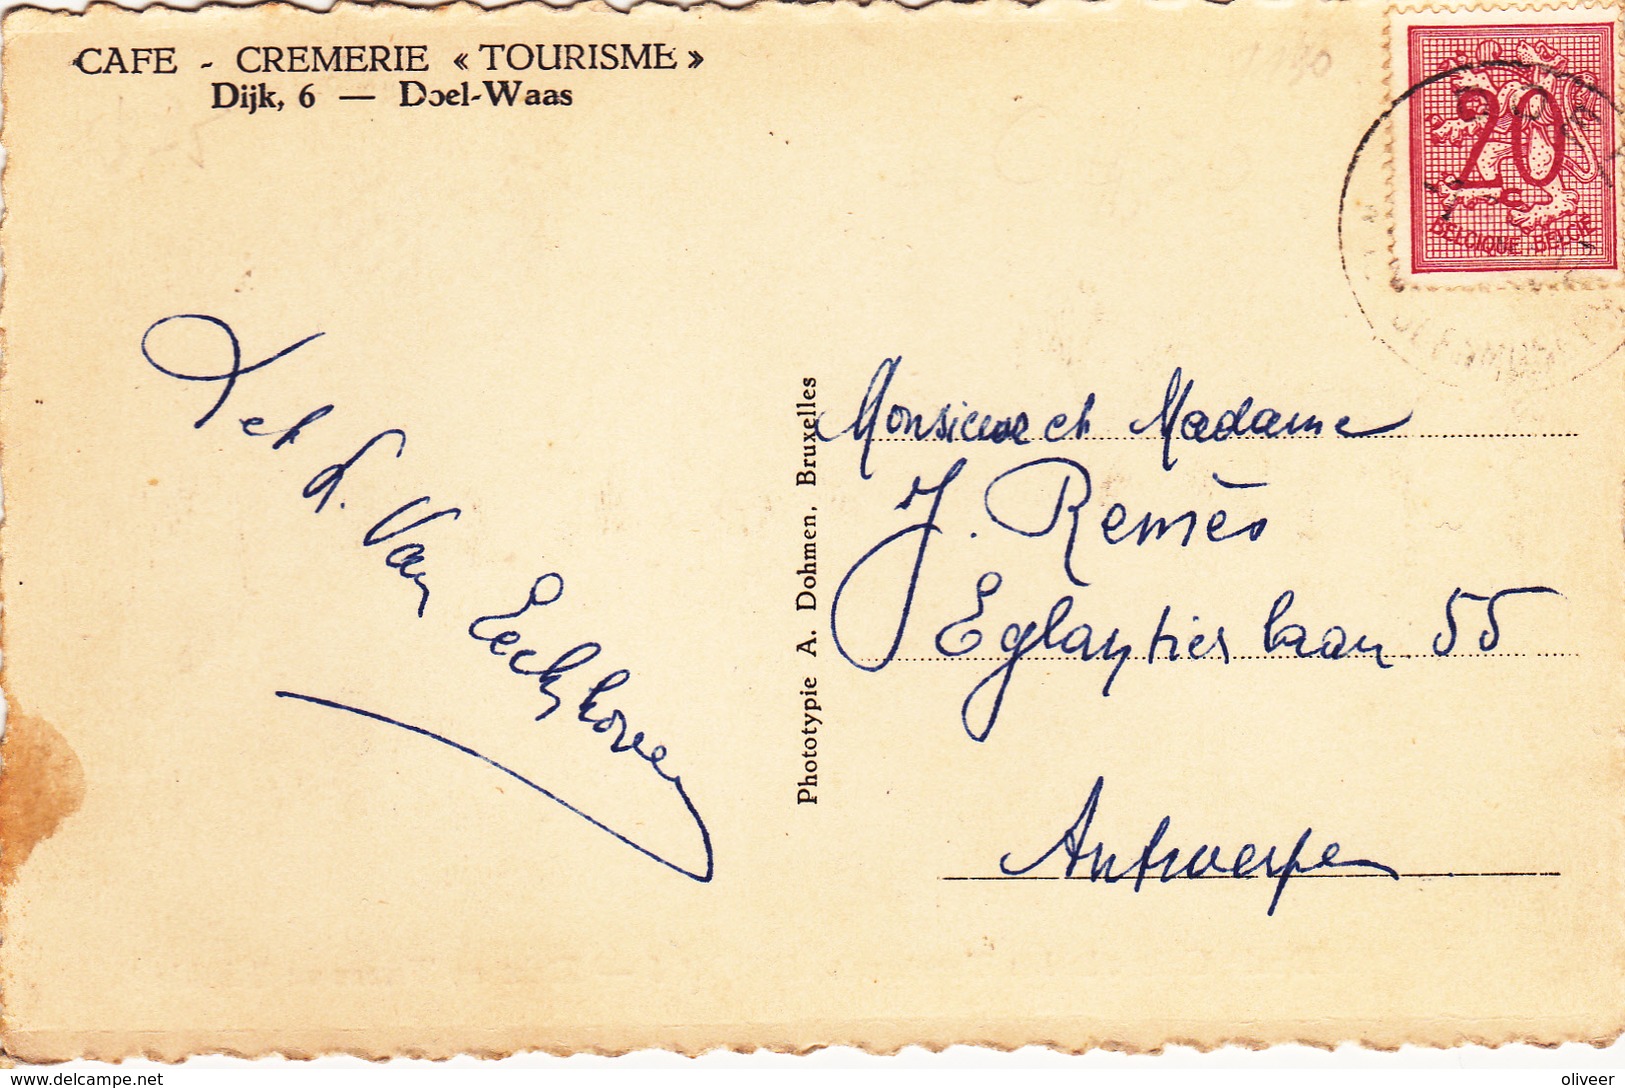 CAFE - CREMERIE « TOURISME »
Dijk, 6 — Doel-Waas
20
BELGIQUE BELGIE
Van Eeckhoven
Phototypie A. Dohmen, Bruxelles
Monsieur et Madame
J. Remès
Eglantierlaan 55
Antwerpen
delcampe.net
oliveer